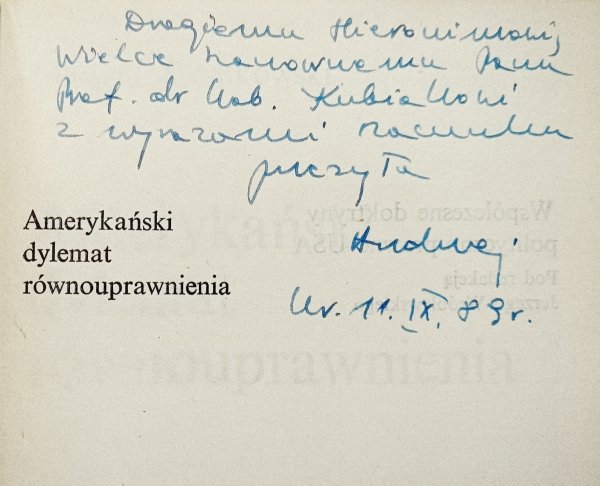 Drogiemu Hieronimowi,
Wielce Szanownemu Panu
Prof. dr hab. Kubiakowi
z wyrazami szacunku
Amerykański
dylemat
równouprawnienia
Współczesne doktryny
USA
Pod redakcją
Andrzej
Kr. 11. IX. 89r.
równouprawnienia